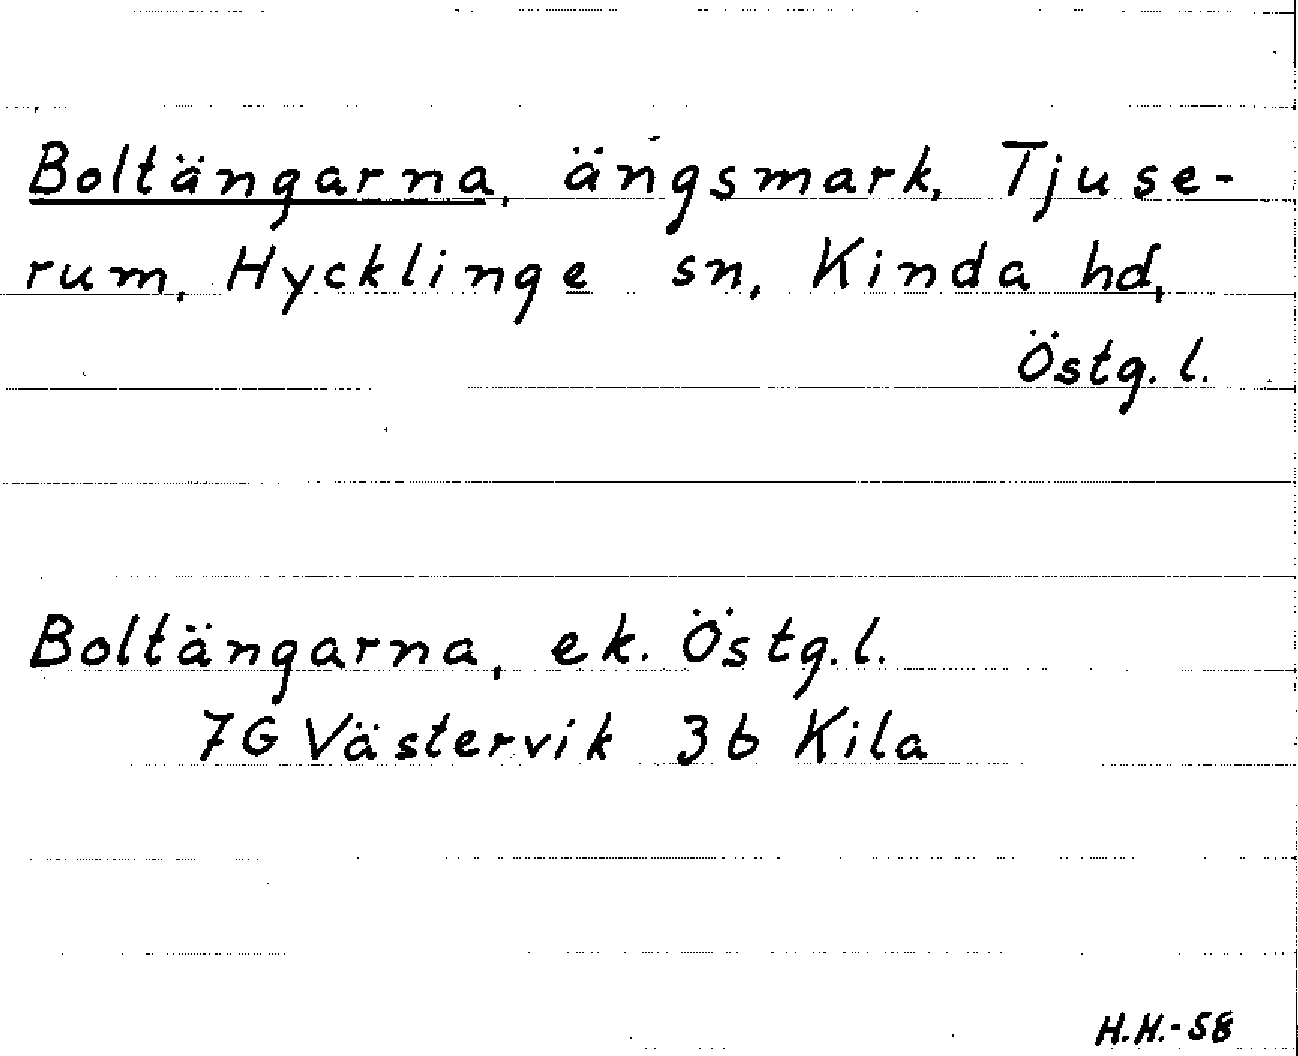 Boltängarna, ängsmark, Tjuse-
rum, Hycklinge sn, Kinda hd,
Östg. l.
Boltängarna, ek. Östg. l.
7G Västervik 3b Kila
H.H.-58